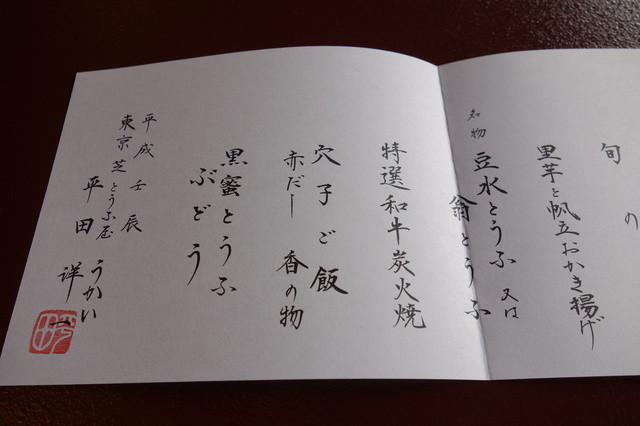 旬の
里芋と帆立おかき揚げ
名物 豆水とうふ 又は
翁とうふ
特選和牛炭火焼
穴子ご飯
赤だし 香の物
黒蜜とうふ
ぶどう
平成壬辰
東京芝とうふ屋うかい
平田詳一